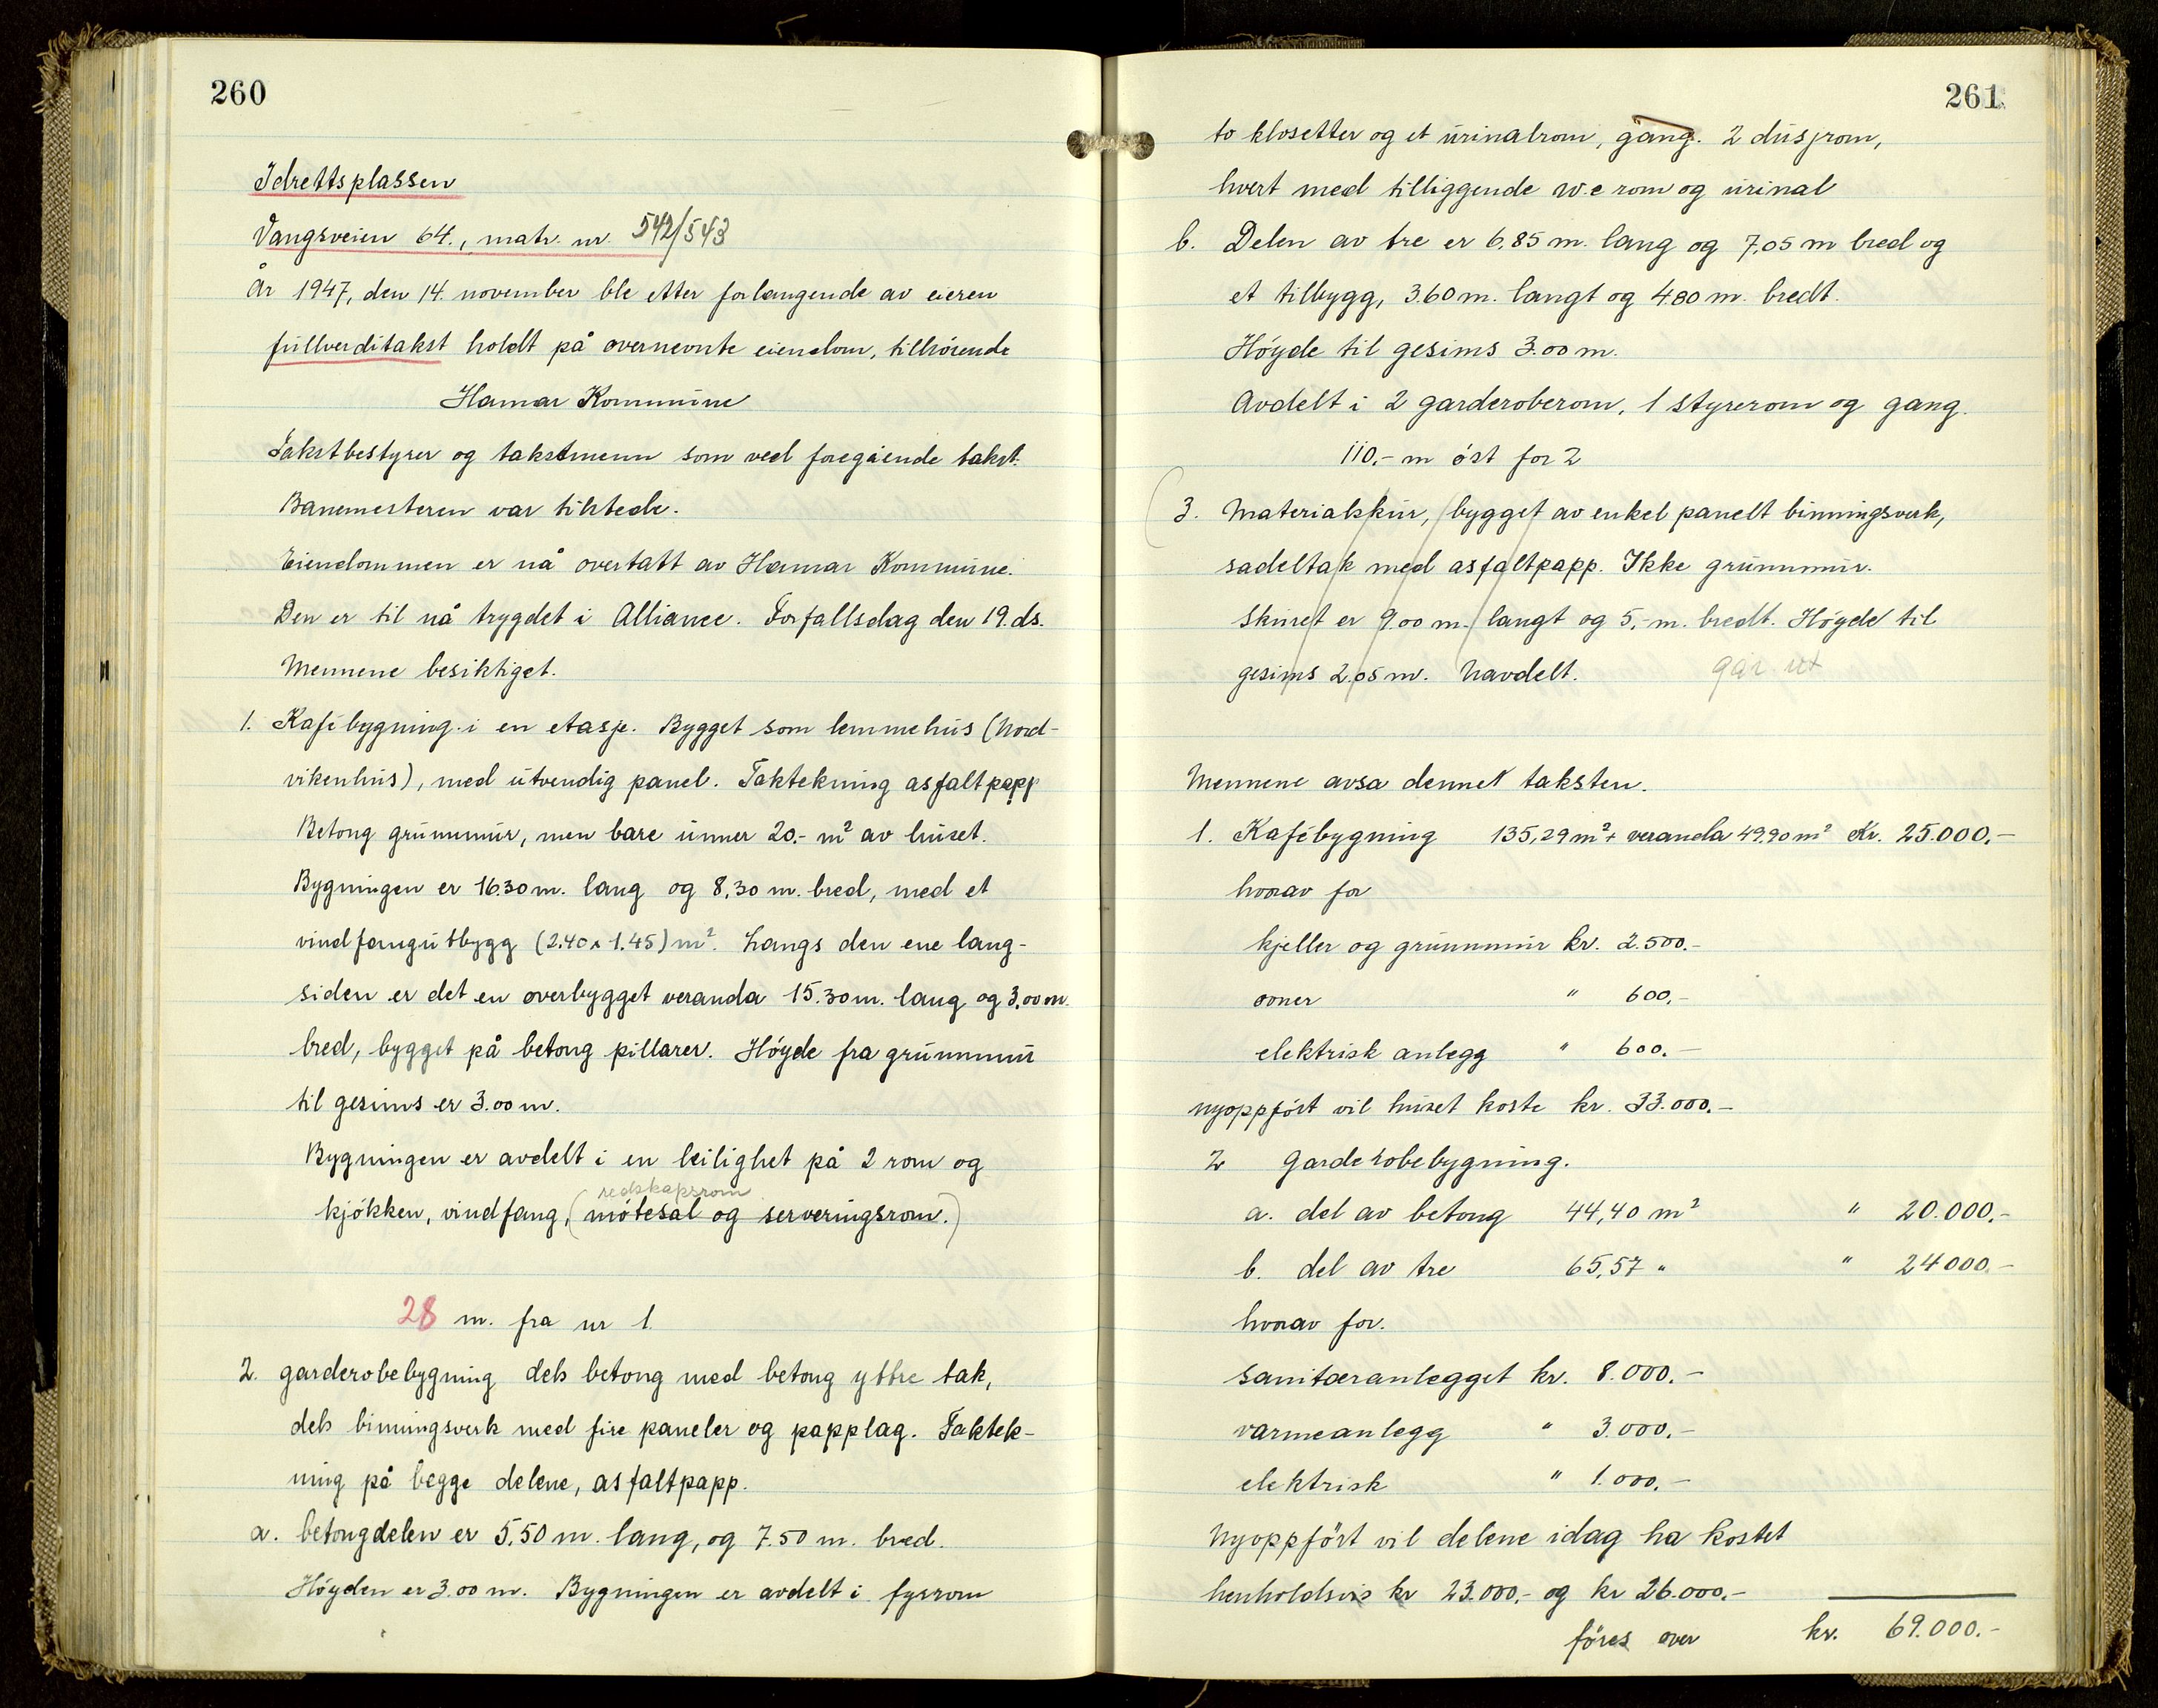 260
Idrettsplassen
Vangsveien 64., matr. nr. 542/543
År 1947, den 14. november ble etter forlangende av eieren
fullverditakst holdt på overnevnte eiendom, tilhörende
Hamar Kommune
Takstbestyrer og takstmenn som ved foregående takst.
Banemesteren var tilstede.
Eiendommen er nå overtatt av Hamar Kommune.
Den er til nå trygdet i Alliance. Forfallsdag den 19. ds.
Mennene besiktiget.
1. Kafébygning i en etasje. Bygget som lemmehus (Nord-
vikenhus), med utvendig panel. Taktekning asfaltpapp
Betong grunnmur, men bare unner 20.- m² av huset.
Bygningen er 16.30 m. lang og 8,30 m. bred, med et
vindfangutbygg (2.40 x 1.45) m². Langs den ene lang-
siden er det en overbygget veranda 15.30 m. lang og 3,00 m.
bred, bygget på betong pillarer. Höyde fra grunnmur
til gesims er 3.00 m.
Bygningen er avdelt i en leilighet på 2 rom og
redskapsrom
kjökken, vindfang, (mötesal og serveringsrom.)
28 m. fra nr 1.
2. garderobebygning dels betong med betong yttre tak,
dels binningsverk med fire paneler og papplag. Taktek-
ning på begge delene, asfaltpapp.
a. betongdelen er 5,50 m. lang, og 7.50 m. bred.
Höyden er 3.00 m. Bygningen er avdelt i fyrrom
261
to klosetter og et urinalrom, gang. 2 dusjrom,
hvert med tilliggende w.c rom og urinal
b. Delen av tre er 6,85 m. lang og 7,05 m bred og
et tilbygg, 3.60 m. langt og 4.80 m. bredt.
Höyde til gesims 3.00 m.
Avdelt i 2 garderoberom, 1 styrerom og gang.
110,- m öst for 2
3. Materialskur, bygget av enkel panelt binningsverk,
sadeltak med asfaltpapp. Ikke grunnmur.
Skuret er 9.00 m. langt og 5,- m. bredt. Höyde til
gesims 2.05 m. Uavdelt. går ut
Mennene avsa denne taksten.
1. Kafébygning 135,29 m² + veranda 49,90 m² Kr. 25.000,-
hvorav for
kjeller og grunnmur kr. 2.500.-
ovner " 600,-
elektrisk anlegg " 600.-
nyoppfört vil huset koste kr. 33.000.-
2 Garderobebygning.
a. del av betong 44,40 m² " 20.000.-
b. del av tre 65,57 " " 24000.-
hvorav for.
sanitæranlegget kr. 8.000.-
varmeanlegg " 3.000.-
elektrisk " 1.000.-
Nyoppfört vil delene idag ha kostet
henholdsvis kr 23.000,- og kr 26.000.-
föres over kr. 69.000.-